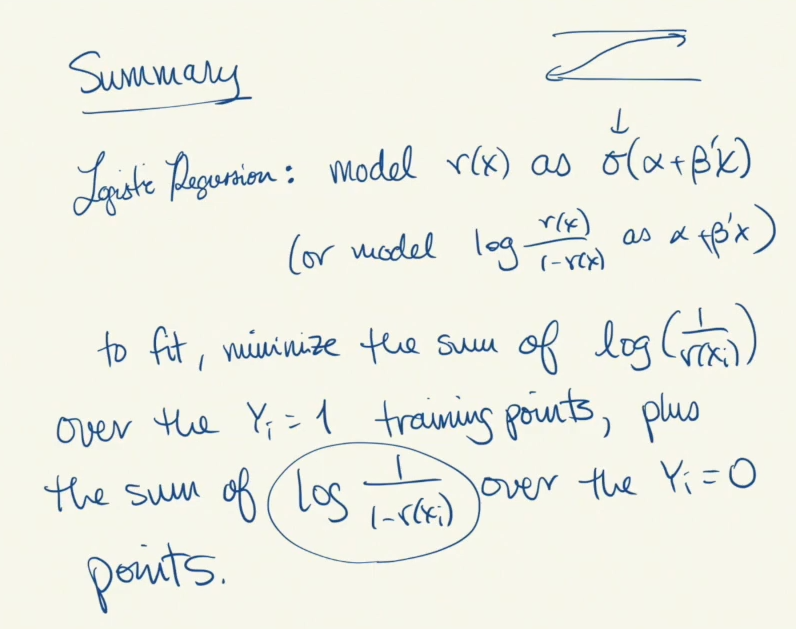 Summary
Logistic Regression: model r(x) as σ(α+β'x)
(or model log r(x)/(1-r(x)) as α+β'x)
to fit, minimize the sum of log(1/r(xi))
over the Yi=1 training points, plus
the sum of log 1/(1-r(xi)) over the Yi=0
points.